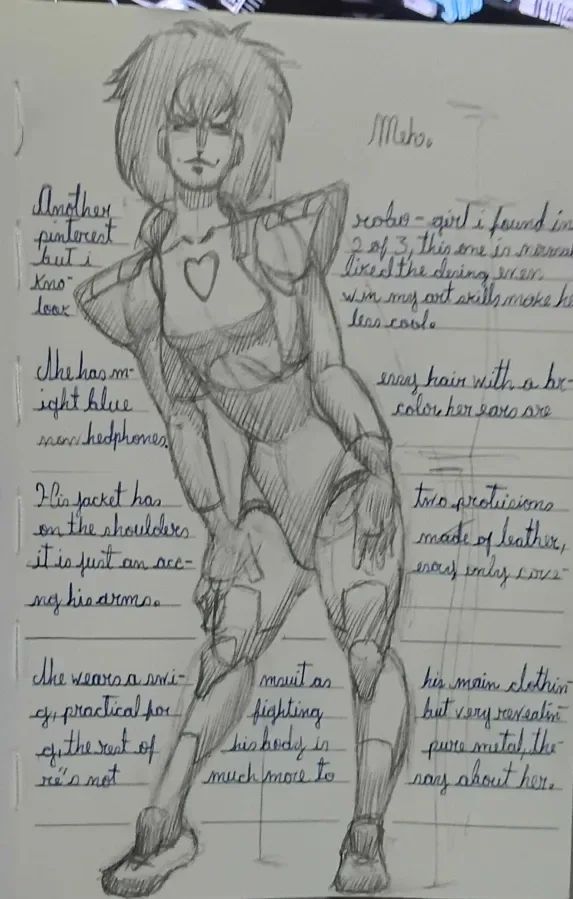 Meko.
Another robo-girl i found in
pinterest 2 of 3, this one is normal
but i liked the desing even
kno- w in my art skills make he
look less cool.
She has m- essy hair with a br-
ight blue color, her ears are
now hedphones.
His jacket has two protusions
on the shoulders made of leather,
it is just an acc- esory only cove-
ng his arms.
She wears a swi- msuit as his main clothin
g, practical for fighting but very revealin
g, the rest of his body is pure metal, the-
re's not much more to say about her.